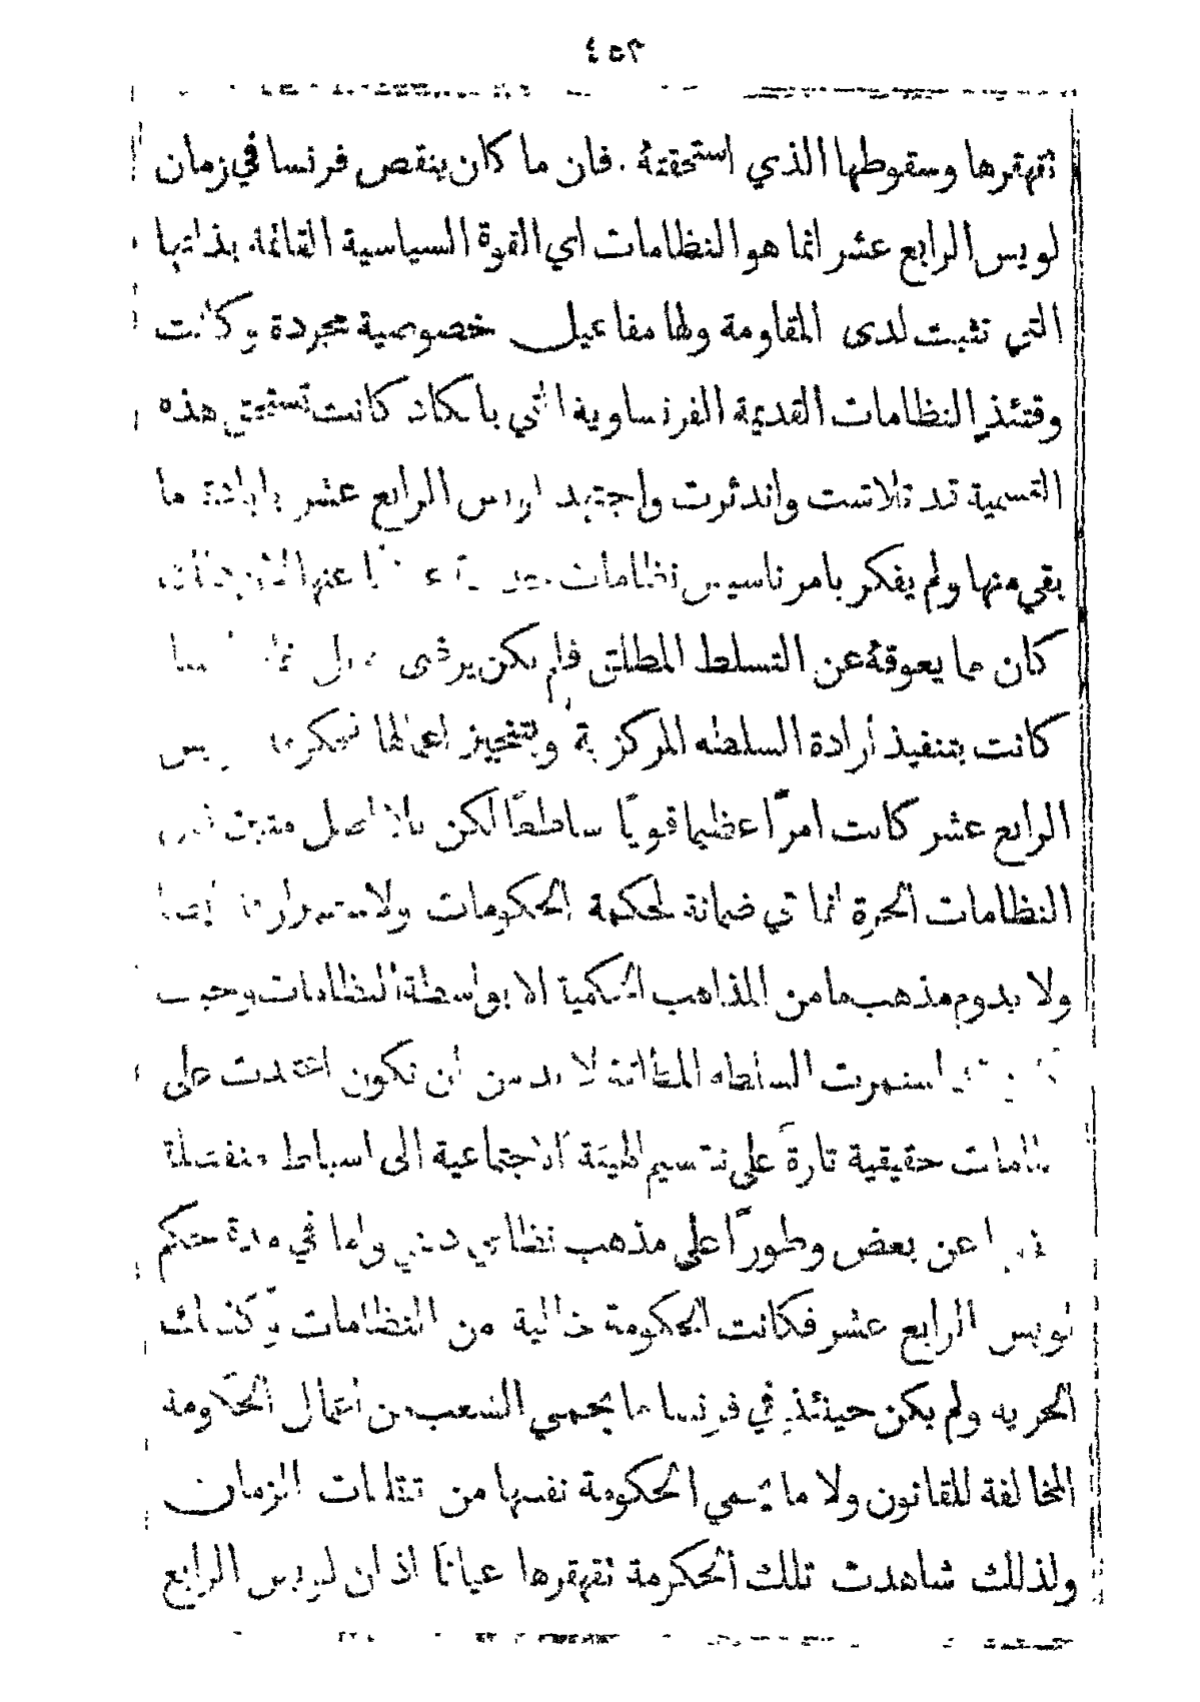 ٤٥٣
تقهقرها وسقوطها الذي استحقتهُ . فان ما كان ينقص فرنسا في زمان
لويس الرابع عشر انما هو النظامات اي القوة السياسية القائمة بذاتها
التي تثبت لدى المقاومة ولها مفاعيل خصوصية مجردة وكانت
وقتئذٍ النظامات القديمة الفرنساوية التي بالكاد كانت تستحق هذه
التسمية قد تلاشت واندثرت واجتهد لويس الرابع عشر بابادة ما
بقي منها ولم يفكر بامر تاسيس نظامات عنها
كان مما يعوقهُ عن التسلط المطلق فلم يكن يرضى
كانت بتنفيذ ارادة السلطه المركزية وبتنجيز اعمالها فحكومة لويس
الرابع عشر كانت امرًا عظيما قويًا ساطعًا لكن بلا اصل متين
النظامات الحرة انما هي ضمانة لحكمة الحكومات ولاستمرارها ايضا
ولا يدوم مذهب ما من المذاهب الحكمية الا بواسطة النظامات وحيث
استمرت السلطه المطلقة لا بد من ان تكون اعتمدت على
نظامات حقيقية تارةً على تقسيم الهيئة الاجتماعية الى اسباط منفصلة
عن بعض وطورًا على مذهب نظامي ديني واما في مدة حكم
لويس الرابع عشر فكانت الحكومة خالية من النظامات وكذلك
الحريه ولم يكن حينئذٍ في فرنسا ما يحمي الشعب من اعمال الحكومة
المخالفة للقانون ولا ما يحمي الحكومة نفسها من تقلبات الزمان
ولذلك شاهدت تلك الحكومة تقهقرها عيانًا اذ ان لويس الرابع